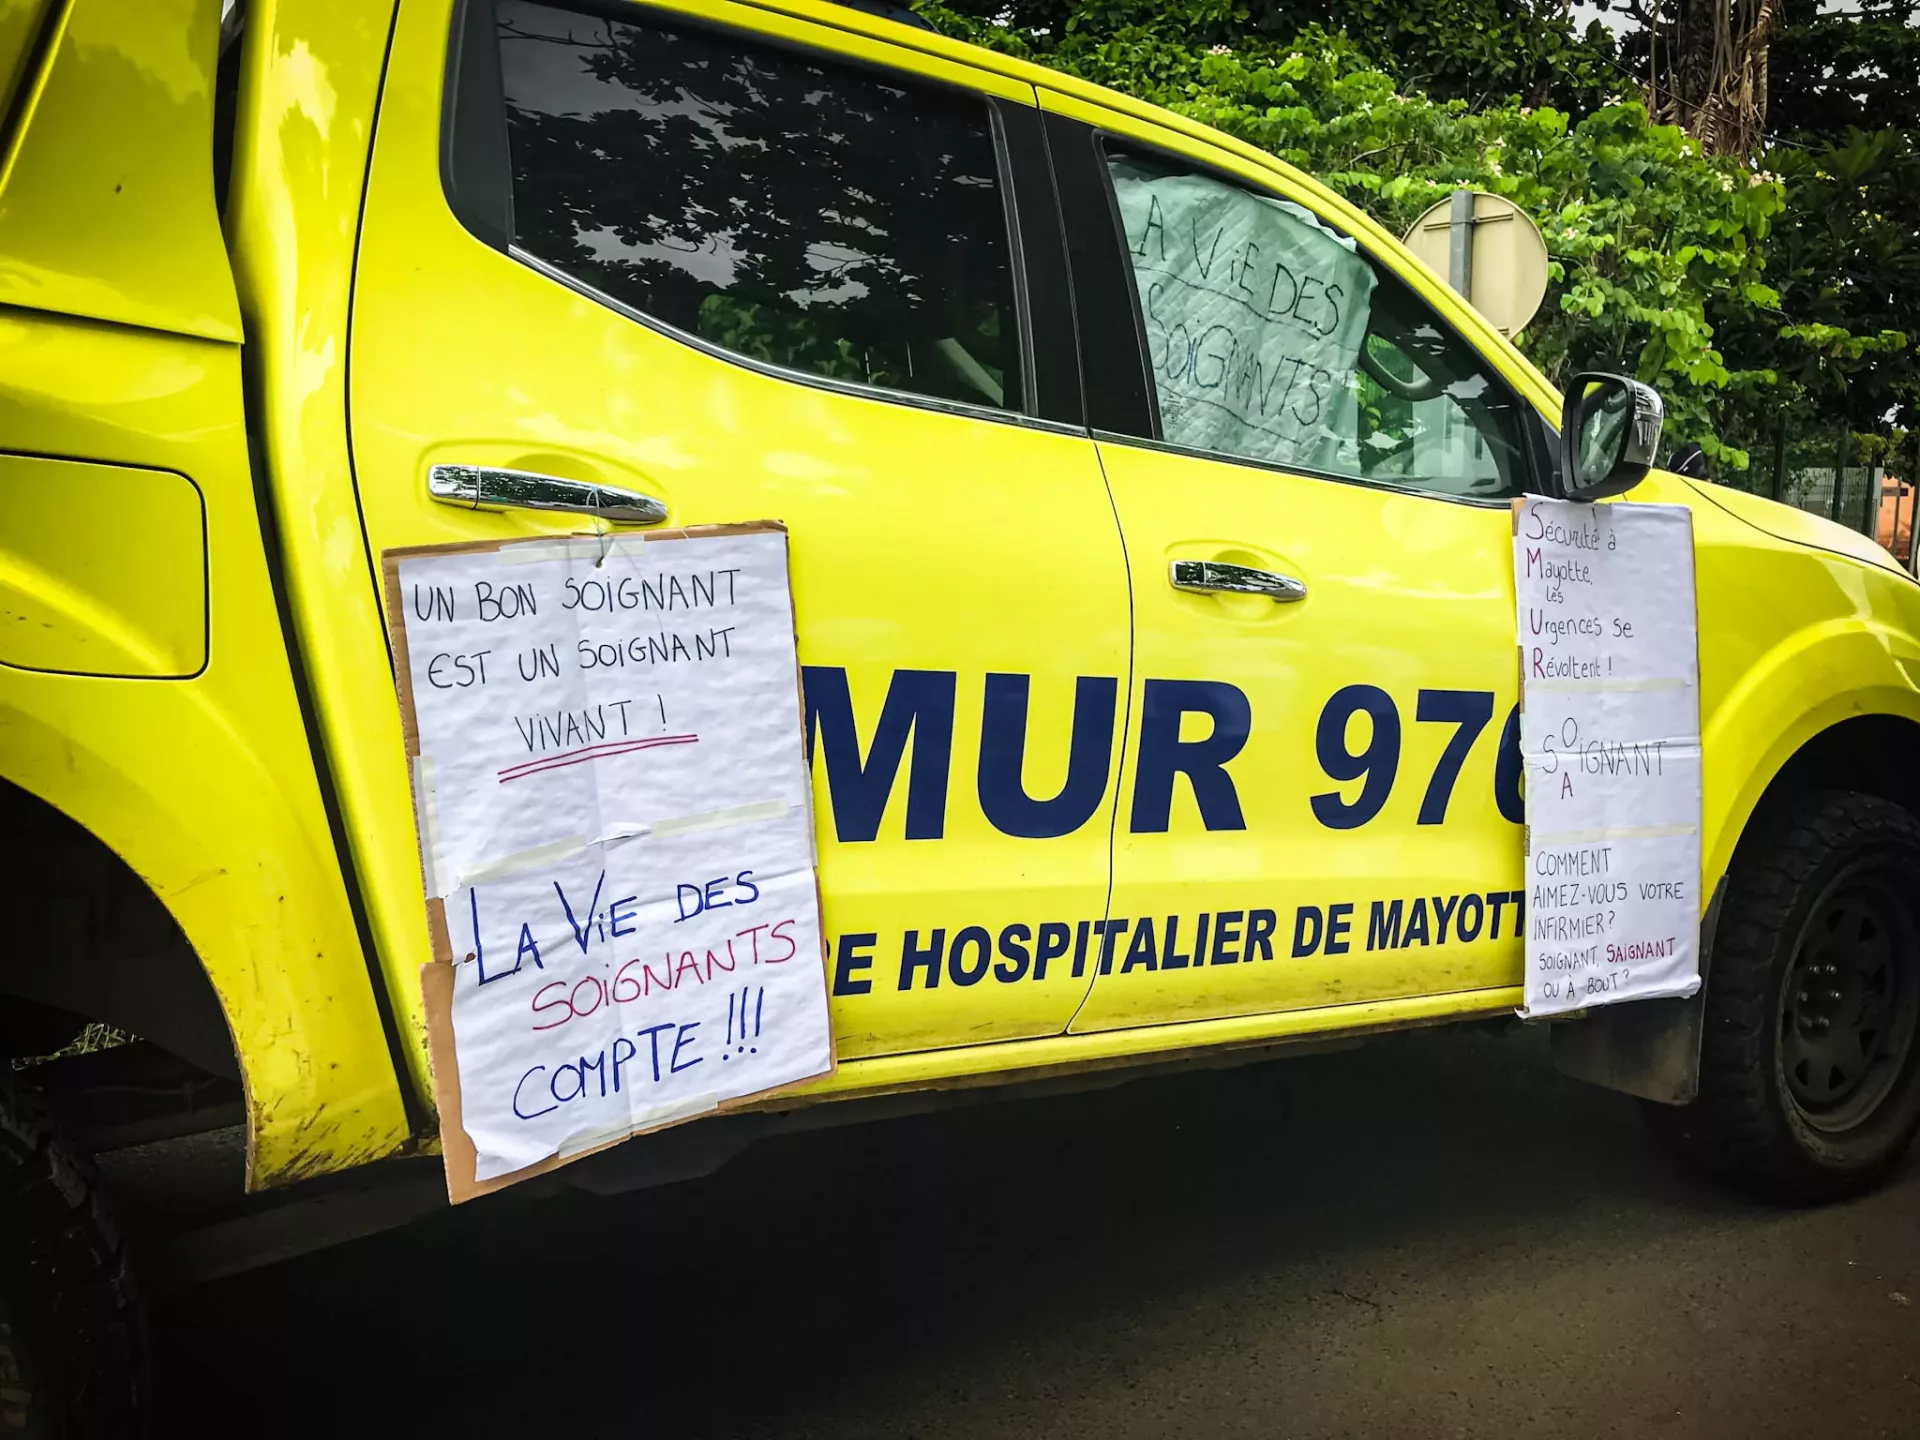 UN BON SOIGNANT
EST UN SOIGNANT
VIVANT !
LA ViE DES
SOiGNANTS
COMPTE !!!
LA ViE DES
SOiGNANTS
MUR 976
E HOSPITALIER DE MAYOTT
Sécurité à
Mayotte,
les
Urgences se
Révoltent !
O
S iGNANT
A
COMMENT
AIMEZ-VOUS VOTRE
iNFiRMiER ?
SOiGNANT, SAiGNANT
OU À BOUT ?